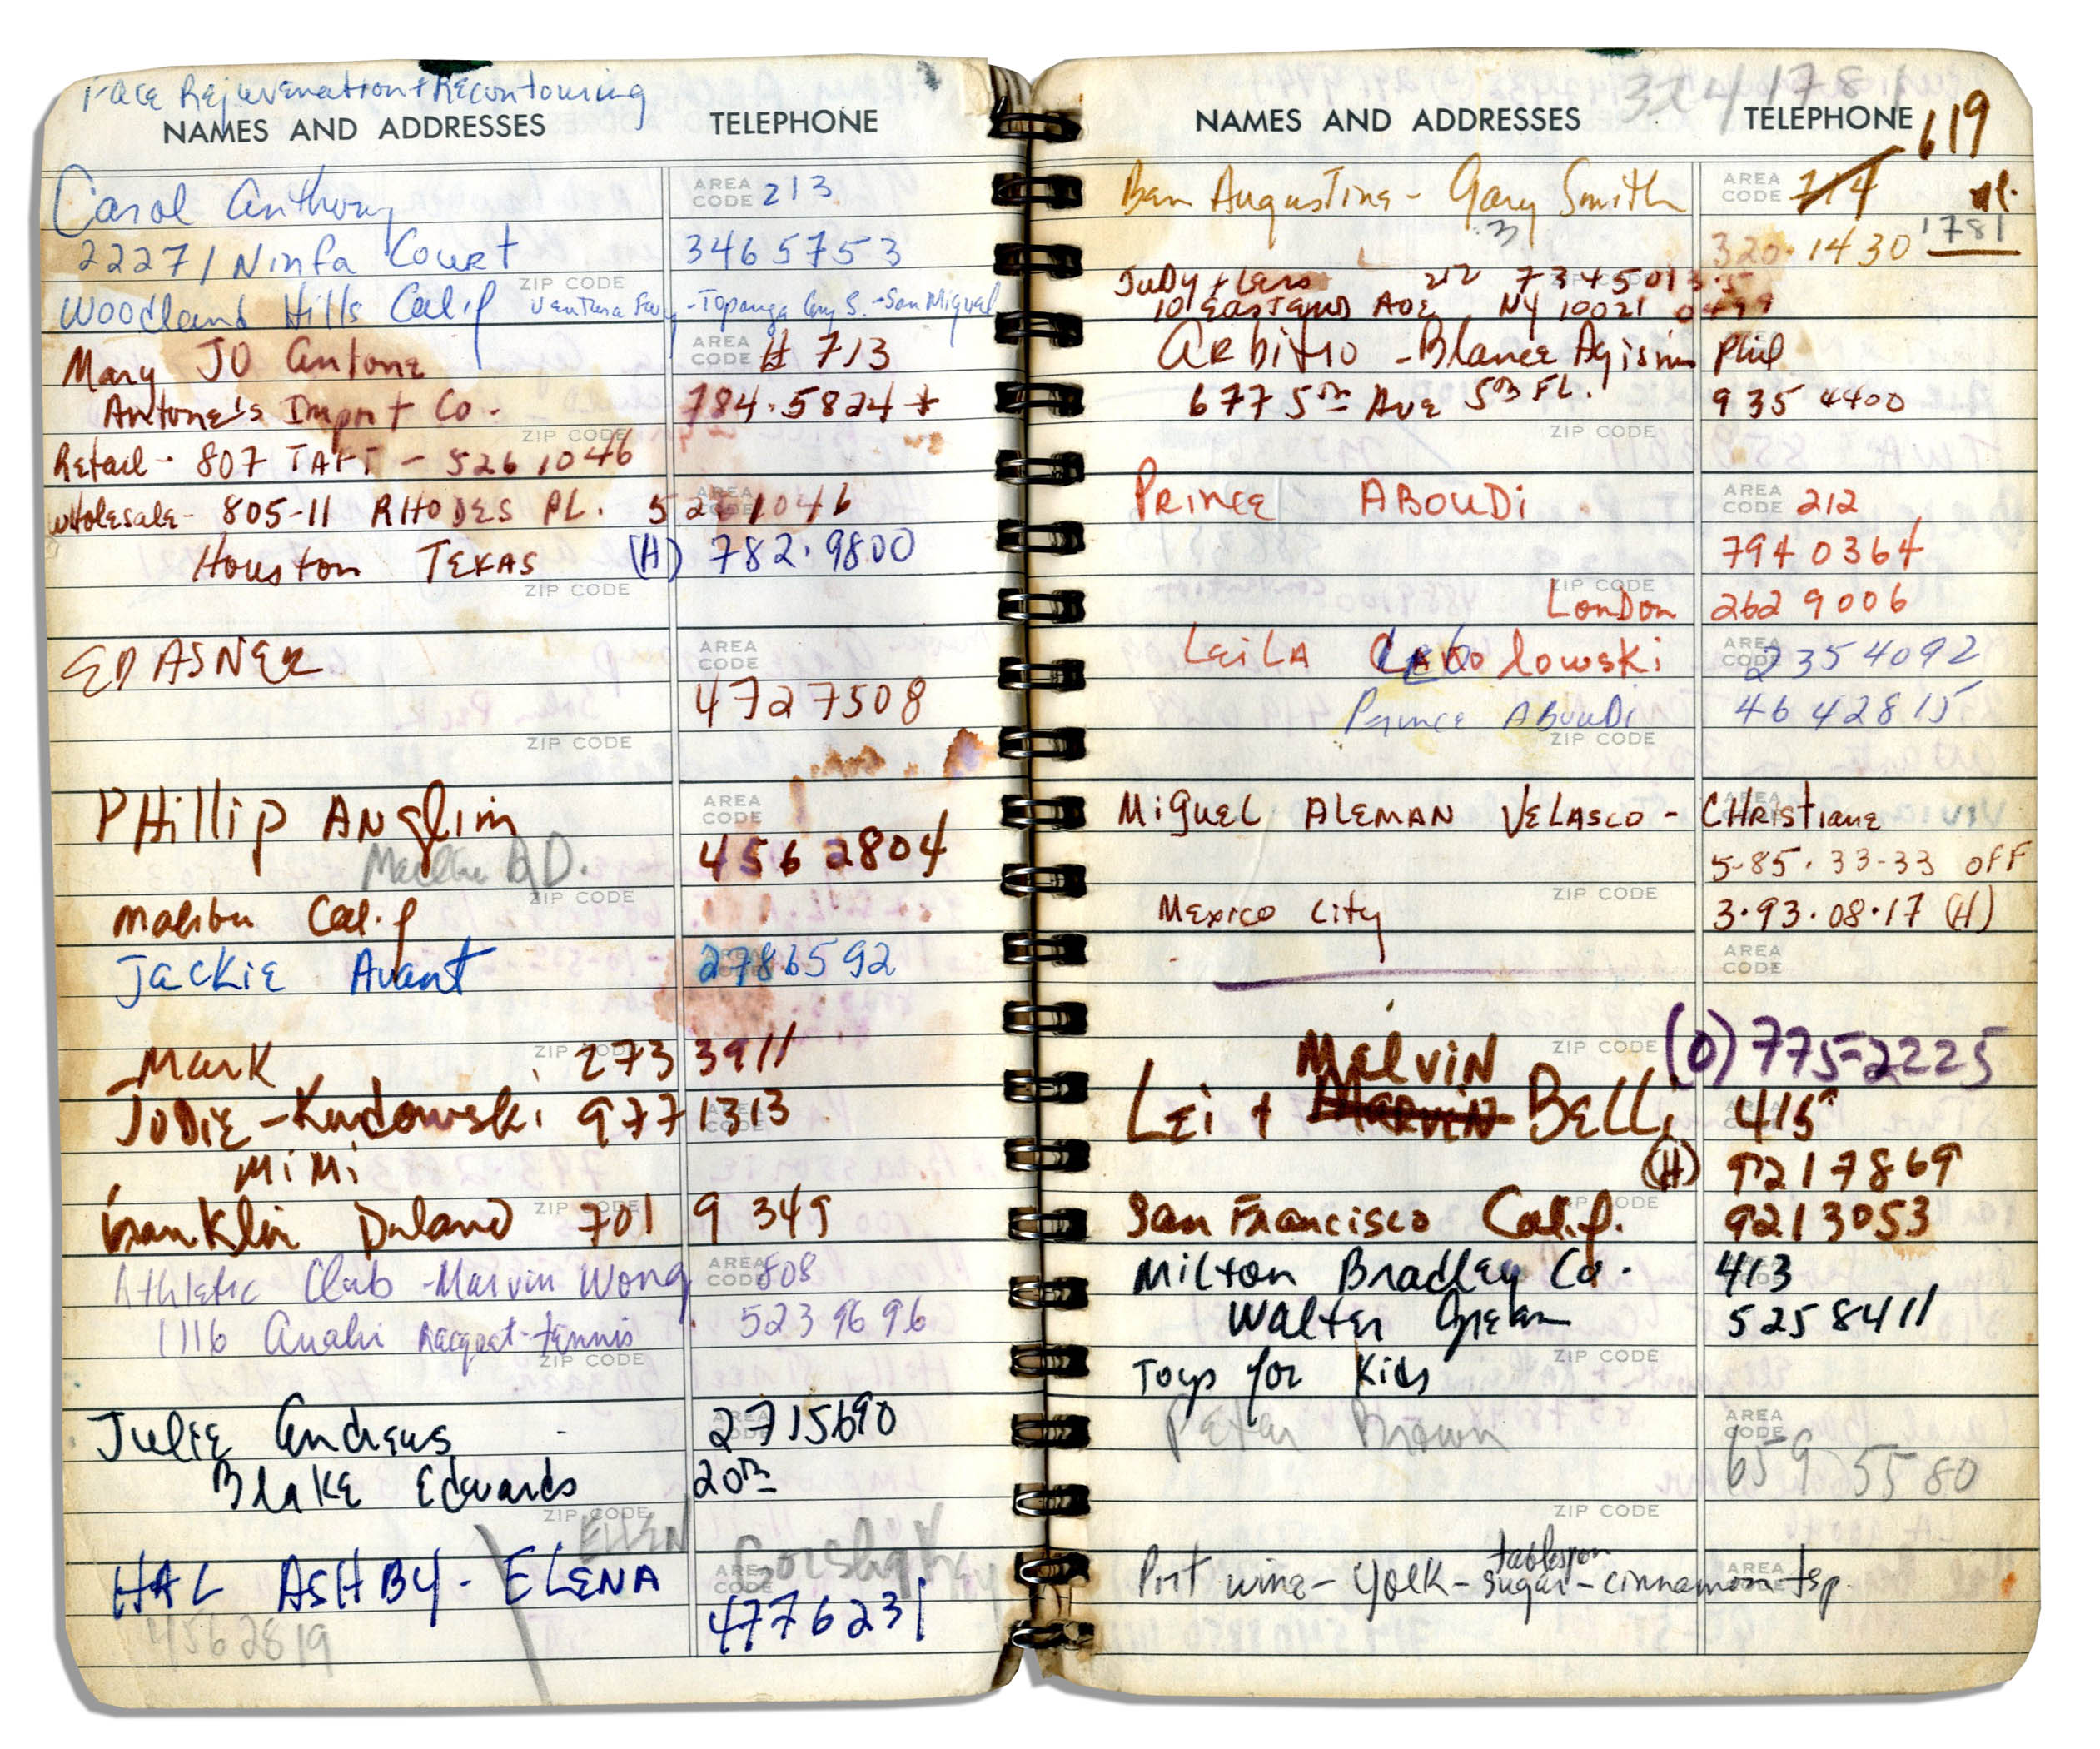 Face Rejuvenation + Recontouring
NAMES AND ADDRESSES TELEPHONE
Carol Anthony AREA CODE 213
22271 Ninfa Court 3465753
ZIP CODE
Woodland Hills Calif Ventura Fwy - Topanga Cny S. - San Miguel
Mary Jo Antone AREA CODE # 713
Antone's Import Co. 784.5824 *
ZIP CODE
Retail - 807 TAFT - 5261046
AREA CODE
Wholesale - 805-11 RHODES PL. 5261046
Houston TEXAS (H) 782.9800
ZIP CODE
ED ASNER AREA CODE
4727508
ZIP CODE
PHillip ANglim AREA CODE
456 2804
ZIP CODE
Malibu Calif
Jackie Avant AREA CODE 2786592
Mark ZIP CODE 273 3911
JODIE - Kurdowski 977 1313 AREA CODE
MiMi
Franklin 701 9349 ZIP CODE
Athletic Club - Marvin Wong AREA CODE 808
1116 Auahi Racquet-tennis 523 9696
ZIP CODE
Julie Andrews AREA CODE 2715690
Blake Edwards 20th
ZIP CODE
ELLEN
HAL ASHBY - ELENA AREA CODE
4562819 4776231
3241781
NAMES AND ADDRESSES TELEPHONE 619
Ben Augustine - Gary Smith AREA CODE 714
320.1430 1781
Judy + 212 7345013
10 East End Ave NY 10021 0499
Arbitio - Blance Phil
677 5th Ave 5th FL. 935 4400
ZIP CODE
PRINCE ABOUDi AREA CODE 212
794 0364
ZIP CODE
LonDon 262 9006
LEiLA AREA CODE 2354092
Prince ABouDi 46 42815
ZIP CODE
MiguEL ALEMAN VELASCO - CHRistiane AREA CODE
5-85.33-33 OFF
ZIP CODE
Mexico City 3.93.08.17 (H)
AREA CODE
MelviN ZIP CODE (O) 775-2225
Lei + MARVIN BELLi 415
(H) 9217869
San Francisco Calif. ZIP CODE 9213053
Milton Bradley Co. 413 AREA CODE
Walter 525 8411
Toys for Kids ZIP CODE
Peter Brown AREA CODE
659 5580
ZIP CODE
tablespoon
Port wine - yolk - sugar - cinnamon tsp. AREA CODE